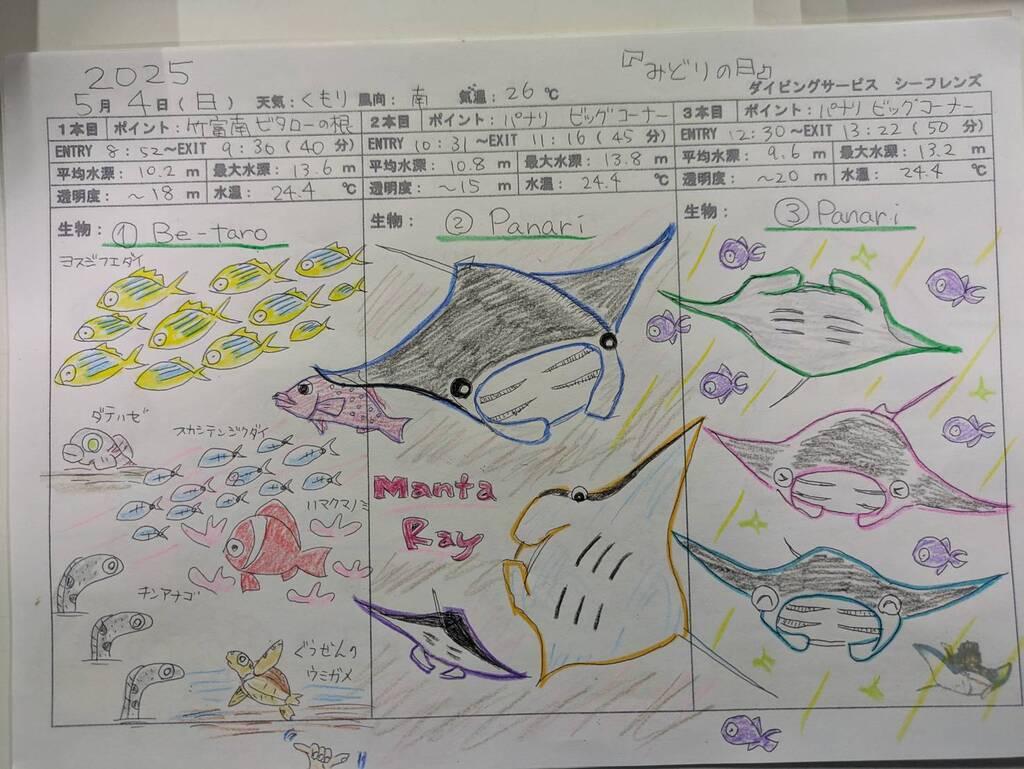 2025
『みどりの日』
5月4日(日) 天気:くもり 風向:南 気温:26℃
ダイビングサービス シーフレンズ
1本目 ポイント:竹富南ビタローの根
ENTRY 8:52~EXIT 9:30(40分)
平均水深:10.2m 最大水深:13.6m
透明度:~18m 水温:24.4℃
生物:① Be-taro
ヨスジフエダイ
ダテハゼ
スカシテンジクダイ
ハマクマノミ
チンアナゴ
ぐうぜんの
ウミガメ
2本目 ポイント:パナリ ビッグコーナー
ENTRY 10:31~EXIT 11:16(45分)
平均水深:10.8m 最大水深:13.8m
透明度:~15m 水温:24.4℃
生物:② Panari
Manta
Ray
3本目 ポイント:パナリ ビッグコーナー
ENTRY 12:30~EXIT 13:22(50分)
平均水深:9.6m 最大水深:13.2m
透明度:~20m 水温:24.4℃
生物:③ Panari